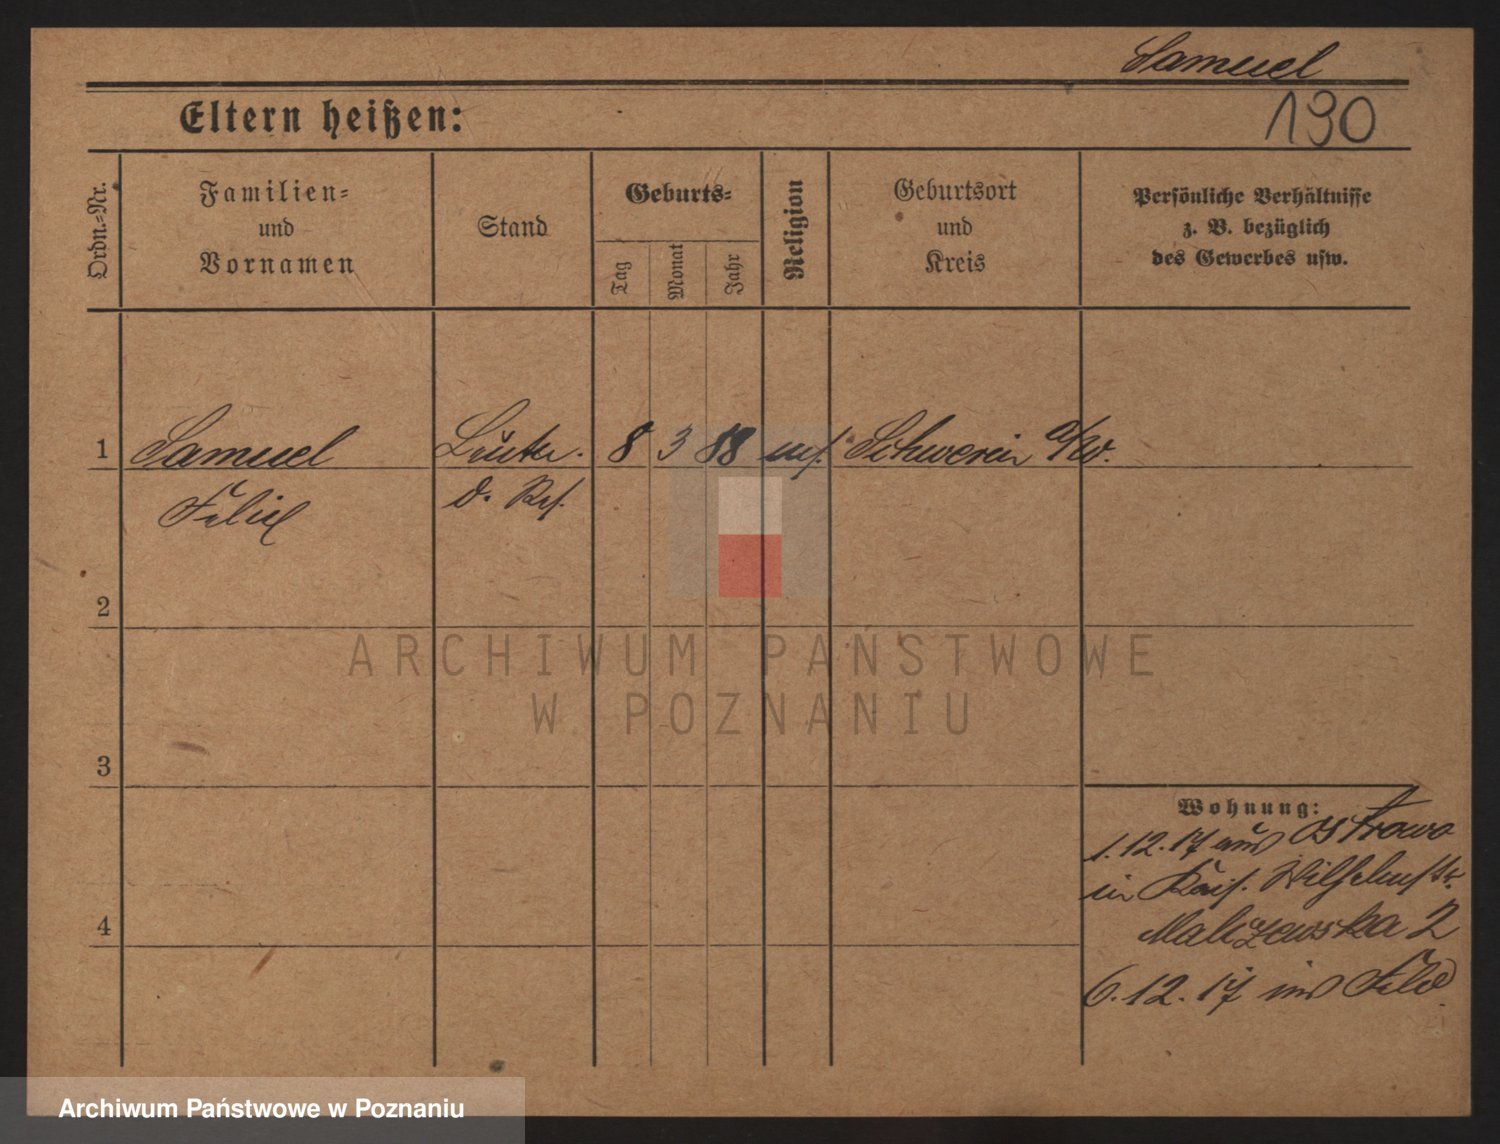 Samuel
Eltern heißen:
190
Ordn.=Nr.
Familien=
und
Vornamen
Stand
Geburts=
Tag
Monat
Jahr
Religion
Geburtsort
und
Kreis
Persönliche Verhältnisse
z. B. bezüglich
des Gewerbes usw.
1
Samuel
8 3 88
Schwerin a/W.
Felix
d. Res.
2
ARCHIWUM PAŃSTWOWE
W POZNANIU
3
Wohnung:
1.12.17 aus Ostrowo
in Kais. Wilhelmstr.
Maliszewska 2
4
6.12.17 ins Feld
Archiwum Państwowe w Poznaniu